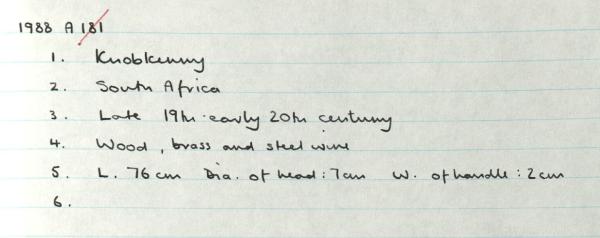 1988 A 181
1. Knobkerry
2. South Africa
3. Late 19th-early 20th century
4. Wood, brass and steel wire
5. L. 76cm Dia. of head: 7cm W. of handle: 2cm
6.